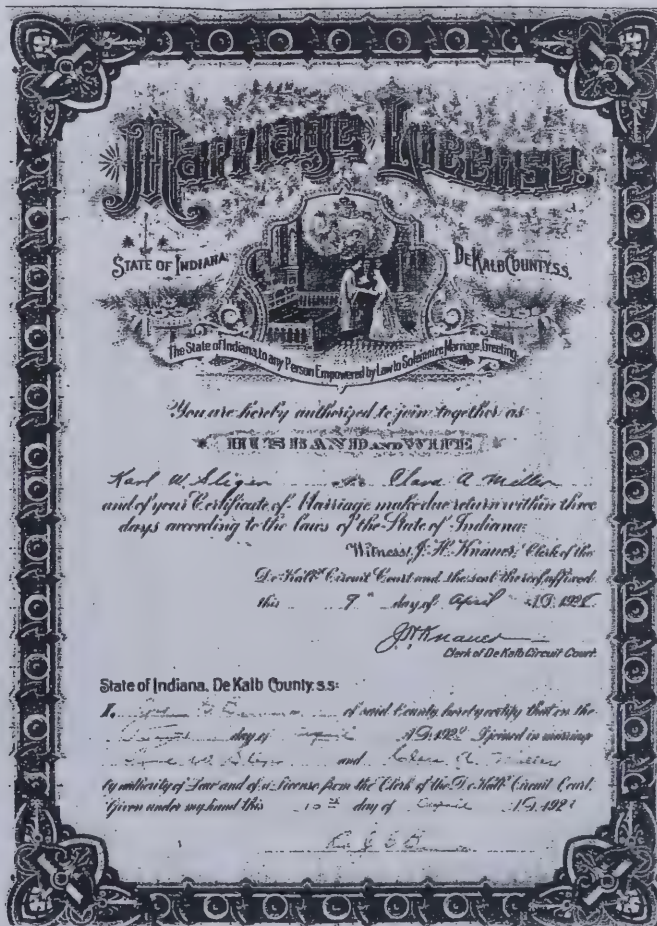 Marriage License.
STATE OF INDIANA
DEKALB COUNTY, S.S.
The State of Indiana, to any Person Empowered by Law to Solemnize Marriage, Greeting.
You are hereby authorized to join together as
HUSBAND AND WIFE
Karl W. Sliger Clara A Miller
and of your Certificate of Marriage make due return within three
days according to the laws of the State of Indiana.
Witness, J. H. Knauer, Clerk of the
De Kalb Circuit Court and the seal thereof affixed
this 9" day of April A.D.
J H Knauer
Clerk of De Kalb Circuit Court.
State of Indiana, De Kalb County, s.s:
I, of said County hereby certify that on the
day of April A.D. I joined in marriage
and A. Miller
by authority of Law and of a License from the Clerk of the De Kalb Circuit Court.
Given under my hand this 10th day of April A.D.